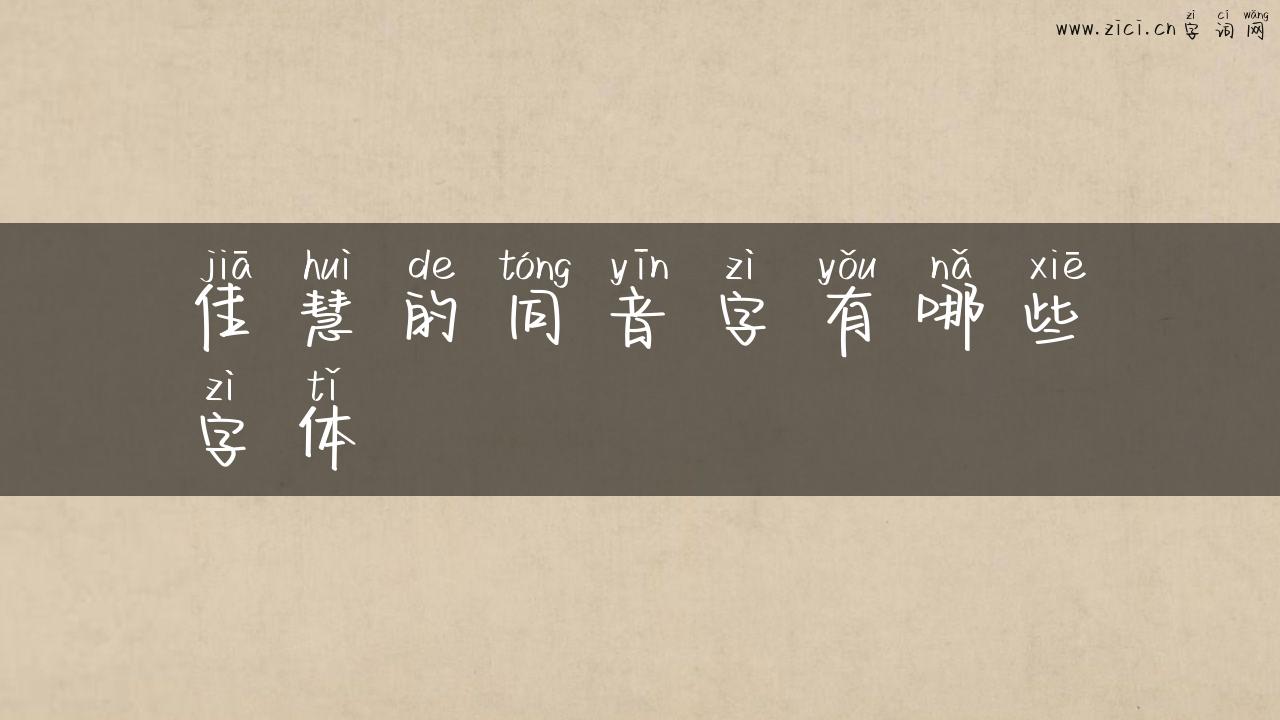 zì cí wǎng
www.zici.cn 字词网
jiā huì de tóng yīn zì yǒu nǎ xiē
佳慧的同音字有哪些
zì tǐ
字体